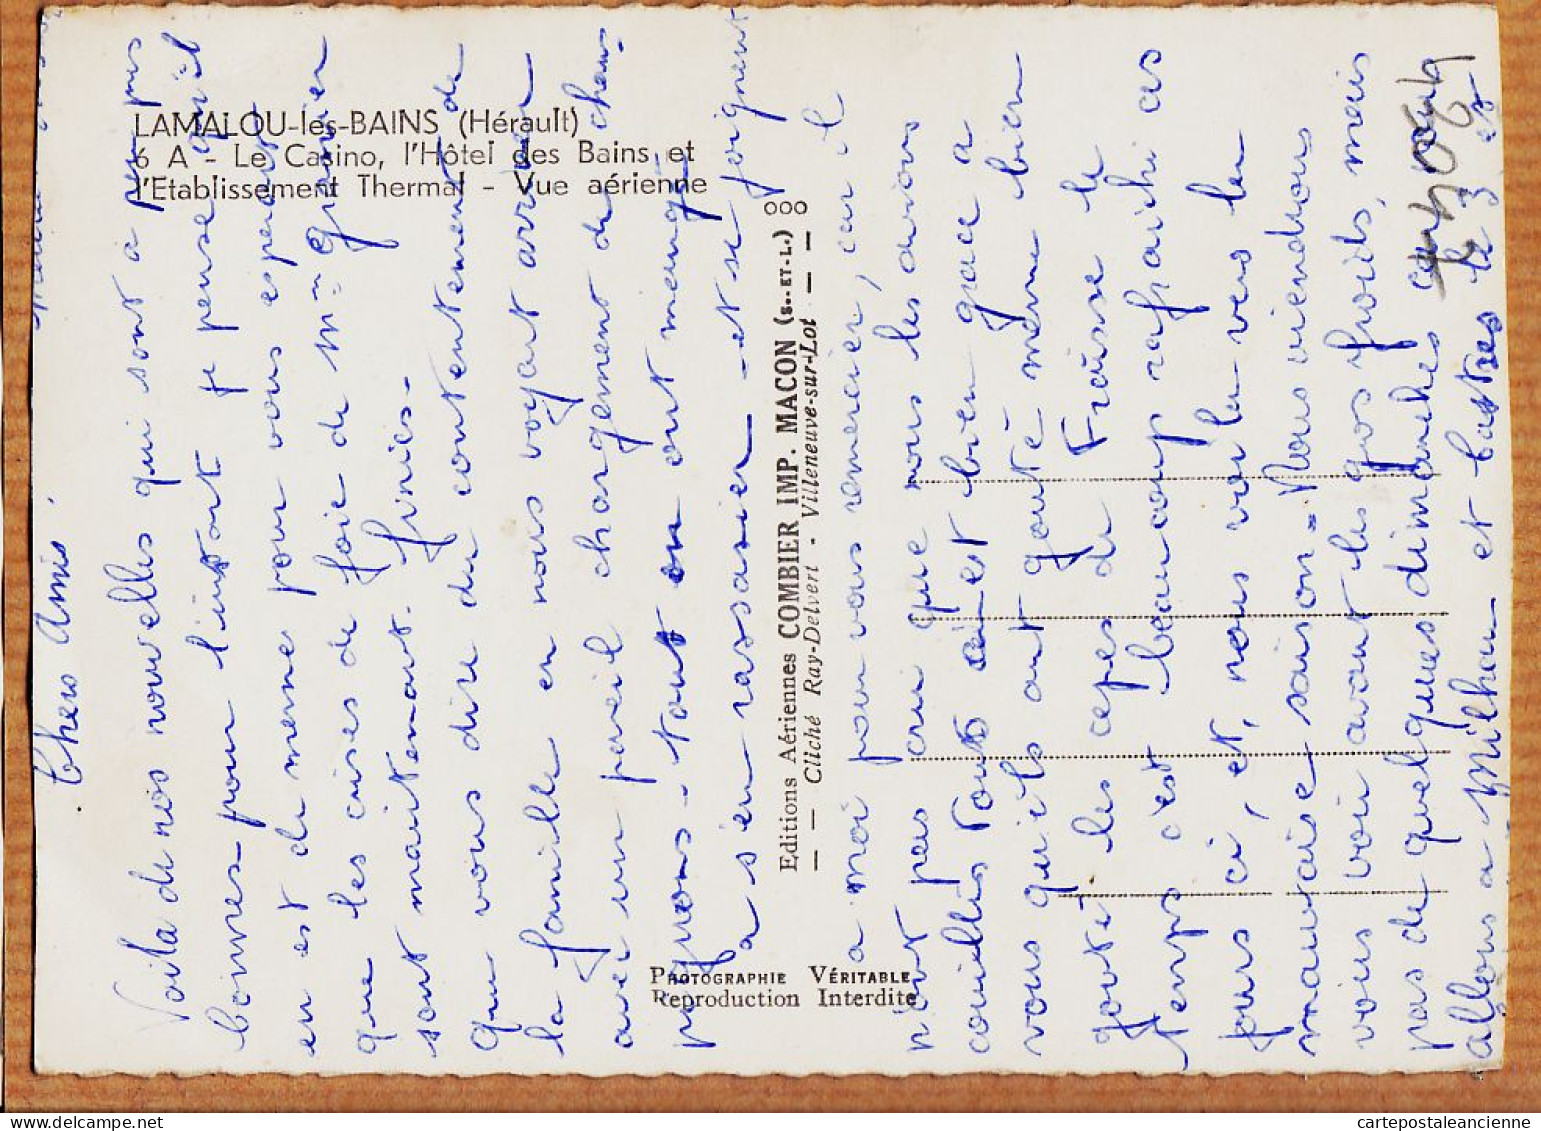 LAMALOU-les-BAINS (Hérault)
6 A - Le Casino, l'Hôtel des Bains et
l'Etablissement Thermal - Vue aérienne
000
Editions Aériennes COMBIER IMP. MACON (S.-ET-L.)
— — Cliché Ray-Delvert - Villeneuve-sur-Lot — —
PHOTOGRAPHIE VÉRITABLE
Reproduction Interdite
Chers Amis.
Voila de nos nouvelles qui sont a peu pres
bonnes pour l'instant je pense qu'il
en est de meme pour vous esperant
que les crises de foie de Mr Granier
sont maintenant finies -
Que vous dire du contentement de
la famille en nous voyant arriver
avec un pareil chargement de cham-
pignons - tout en ont mangé
a s'en rassasier - et se joignent
a moi pour vous remercier, car il
n'ont pas cru que nous les avions
cueillis tous c'est bien grace a
vous qu'ils ont gouté même bien
gouté les cepes de Fraisse le
temps c'est beaucoup rafraichi ces
jours ci, et, nous voila vers la
mauvaise saison = Nous viendrons
vous voir avant les gros froids, mais
pas de quelques dimanches car nous
allons a Milhau et Castres le 3 et